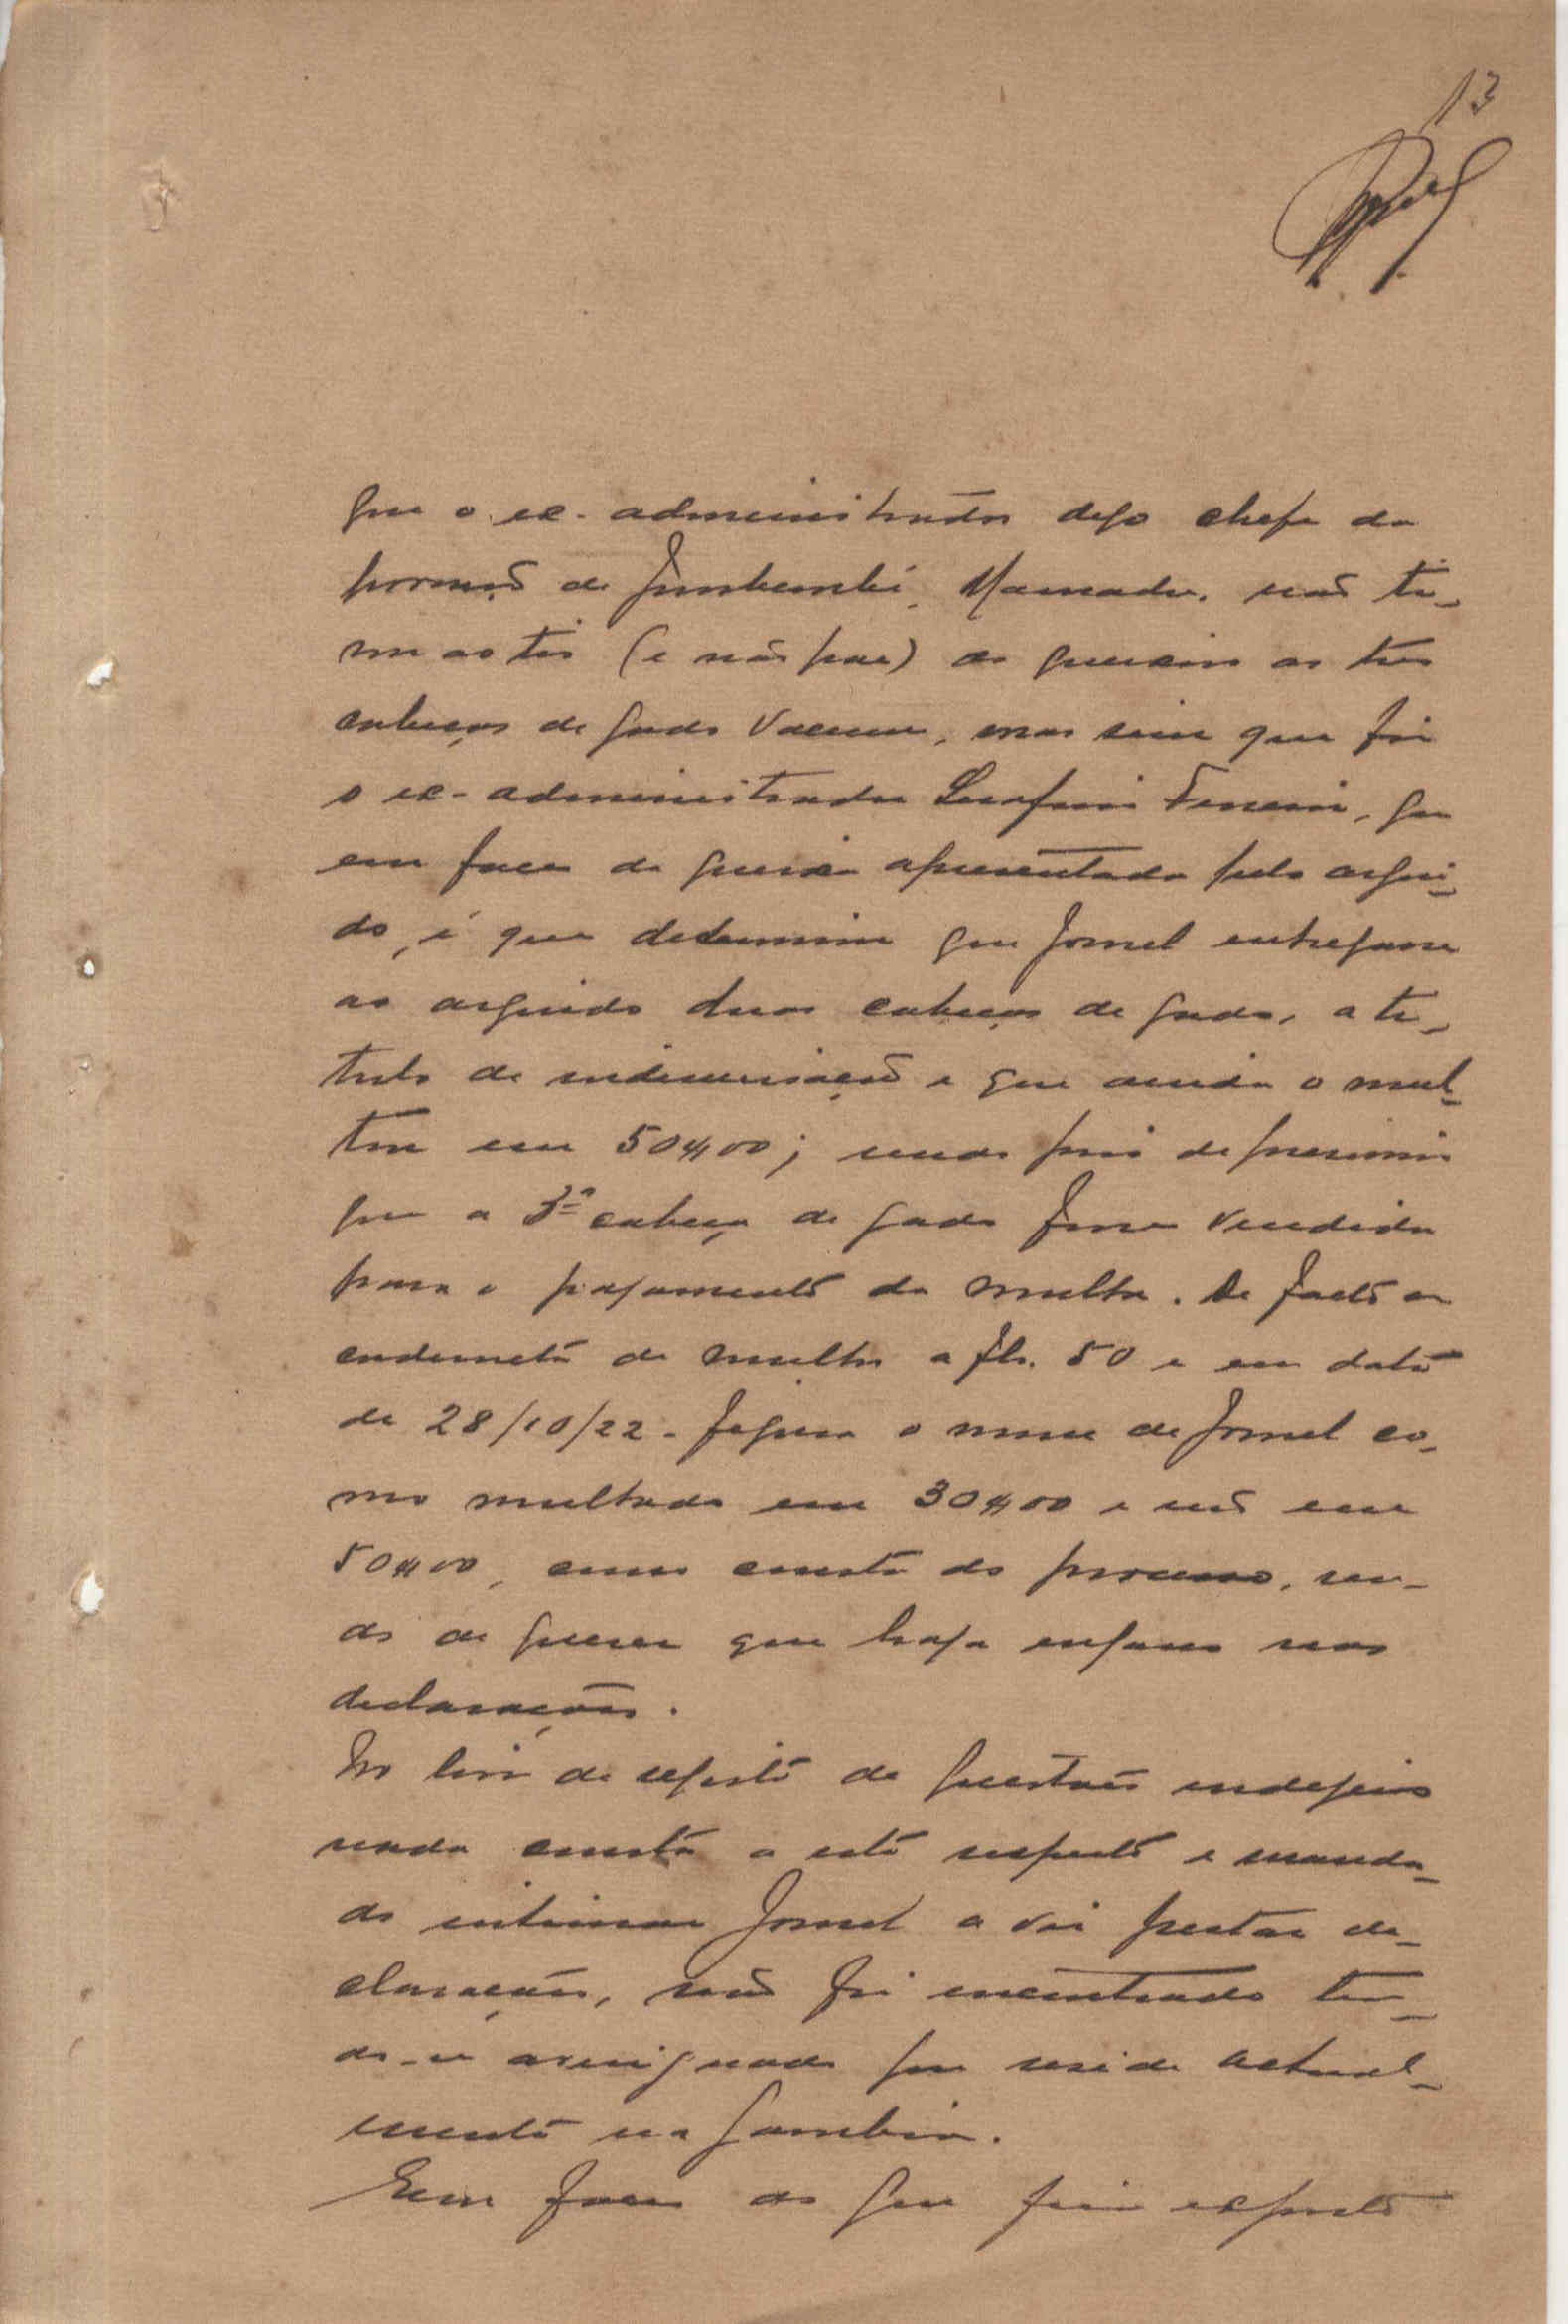 13
que o ex-administrador digo chefe da
povoação de Jumbembé, Mamadu, não ti-
rou ao tio (e não pae) do queixoso as tres
cabeças de gado vacum, mas sim que foi
o ex-administrador Serafim Ferreira, que
em face da queixa apresentada pelo argui-
do, é que determinou que Jornel entregasse
ao arguido duas cabeças de gado, a ti-
tulo de indemnisação e que ainda o mul-
tou em 50$00; sendo pois de presumir
que a 3ª cabeça de gado fosse vendida
para o pagamento da multa. De facto na
caderneta de multas a fls. 50 e em data
de 28/10/22 - figura o nome de Jornel co-
mo multado em 30$00 e não em
50$00, como consta do processo, sen-
do de querer que haja engano nas
declarações.
No livro de registo de questões indigenas
nada consta a este respeito e manda-
do intimar Jornel a vir prestar de-
clarações, não foi encontrado ten-
do-se averiguado que reside actual-
mente na Gambia.
Em face do que fica exposto